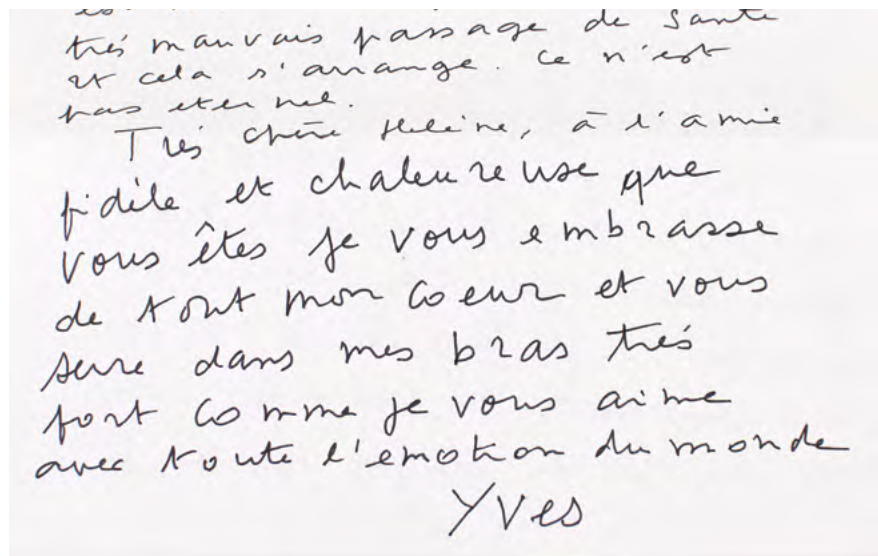 très mauvais passage de santé
et cela s'arrange. ce n'est
pas eternel.
Très chère Helène, à l'amie
fidèle et chaleureuse que
vous êtes je vous embrasse
de tout mon coeur et vous
serre dans mes bras très
fort comme je vous aime
avec toute l'emotion du monde
Yves